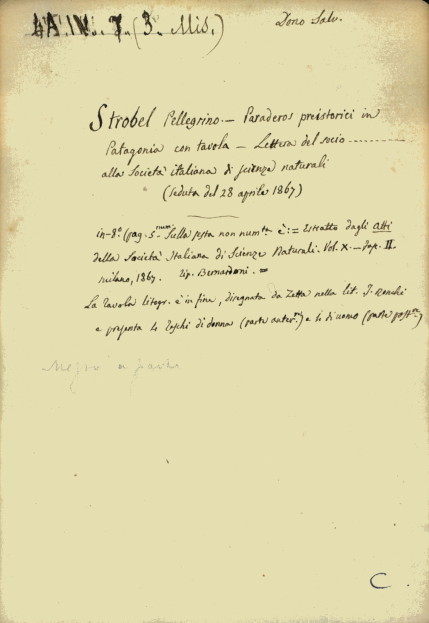 4A.IV. 7. (3ª Mis.)
Dono Salv.
Strobel Pellegrino. — Paraderos preistorici in
Patagonia con tavola — Lettera del socio ..........
alla Società italiana di scienze naturali
(seduta del 28 aprile 1867)
in-8º (pag. 5 Sulla testa non numta è: = Estratto dagli atti
della Società Italiana di Scienze Naturali. Vol. X. — Fasc. II.
Milano, 1867. Tip. Bernardoni. =
La Tavola litogr. è in fine, disegnata da Zetta nella lit. Ronchi
e presenta 4 Teschi di donna (parte anter.) e 4 di uomo (parte post.)
C